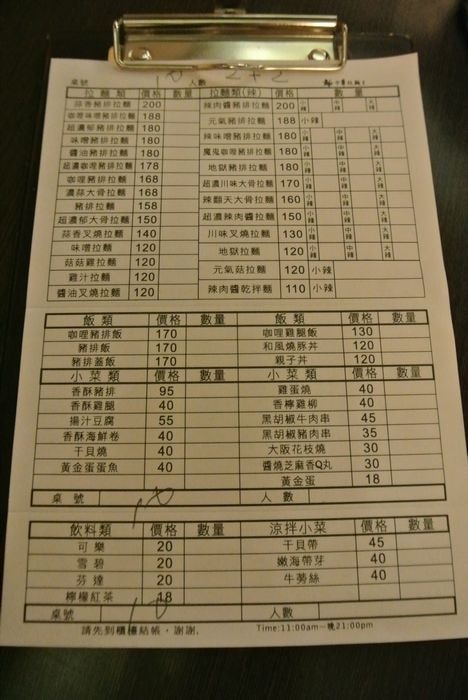 桌號 10 人數 2+2
拉麵類 價格 數量 拉麵類(辣) 價格 數量
蒜香豬排拉麵 200 辣肉醬豬排拉麵 200 小辣 中辣 大辣
咖哩味噌豬排拉麵 188 元氣豬排拉麵 188 小辣
超濃郁豬排拉麵 180 辣味噌豬排拉麵 180 小辣 中辣 大辣
味噌豬排拉麵 180 魔鬼咖哩豬排拉麵 180 小辣 中辣 大辣
醬油豬排拉麵 180 地獄豬排拉麵 180 小辣 中辣 大辣
超濃咖哩豬排拉麵 178 超濃川味大骨拉麵 170 小辣 中辣 大辣
咖哩豬排拉麵 168 辣翻天大骨拉麵 160 小辣 中辣 大辣
濃蒜大骨拉麵 168 超濃辣肉醬拉麵 150 小辣 中辣 大辣
豬排拉麵 158 川味叉燒拉麵 130 小辣 中辣 大辣
超濃郁大骨拉麵 150 地獄拉麵 120 小辣 中辣 大辣
蒜香叉燒拉麵 140 元氣菇拉麵 120 小辣
味噌拉麵 120 辣肉醬乾拌麵 110 小辣
菇菇雞拉麵 120
雞汁拉麵 120
醬油叉燒拉麵 120
飯類 價格 數量 飯類 價格 數量
咖哩豬排飯 170 咖哩雞腿飯 130
豬排飯 170 和風燒豚丼 120
豬排蓋飯 170 親子丼 120
小菜類 價格 數量 小菜類 價格 數量
香酥豬排 95 雞蛋燒 40
香酥雞腿 40 香檸雞柳 40
揚汁豆腐 55 黑胡椒牛肉串 45
香酥海鮮卷 40 黑胡椒豬肉串 35
干貝燒 40 大阪花枝燒 30
黃金蛋蛋魚 40 醬燒芝麻香Q丸 30
黃金蛋 18
桌號 10 人數
飲料類 價格 數量 涼拌小菜 價格 數量
可樂 20 干貝帶 45
雪碧 20 嫩海帶芽 40
芬達 20 牛蒡絲 40
檸檬紅茶 18
桌號 10 人數
請先到櫃檯結帳，謝謝. Time:11:00am～晚21:00pm